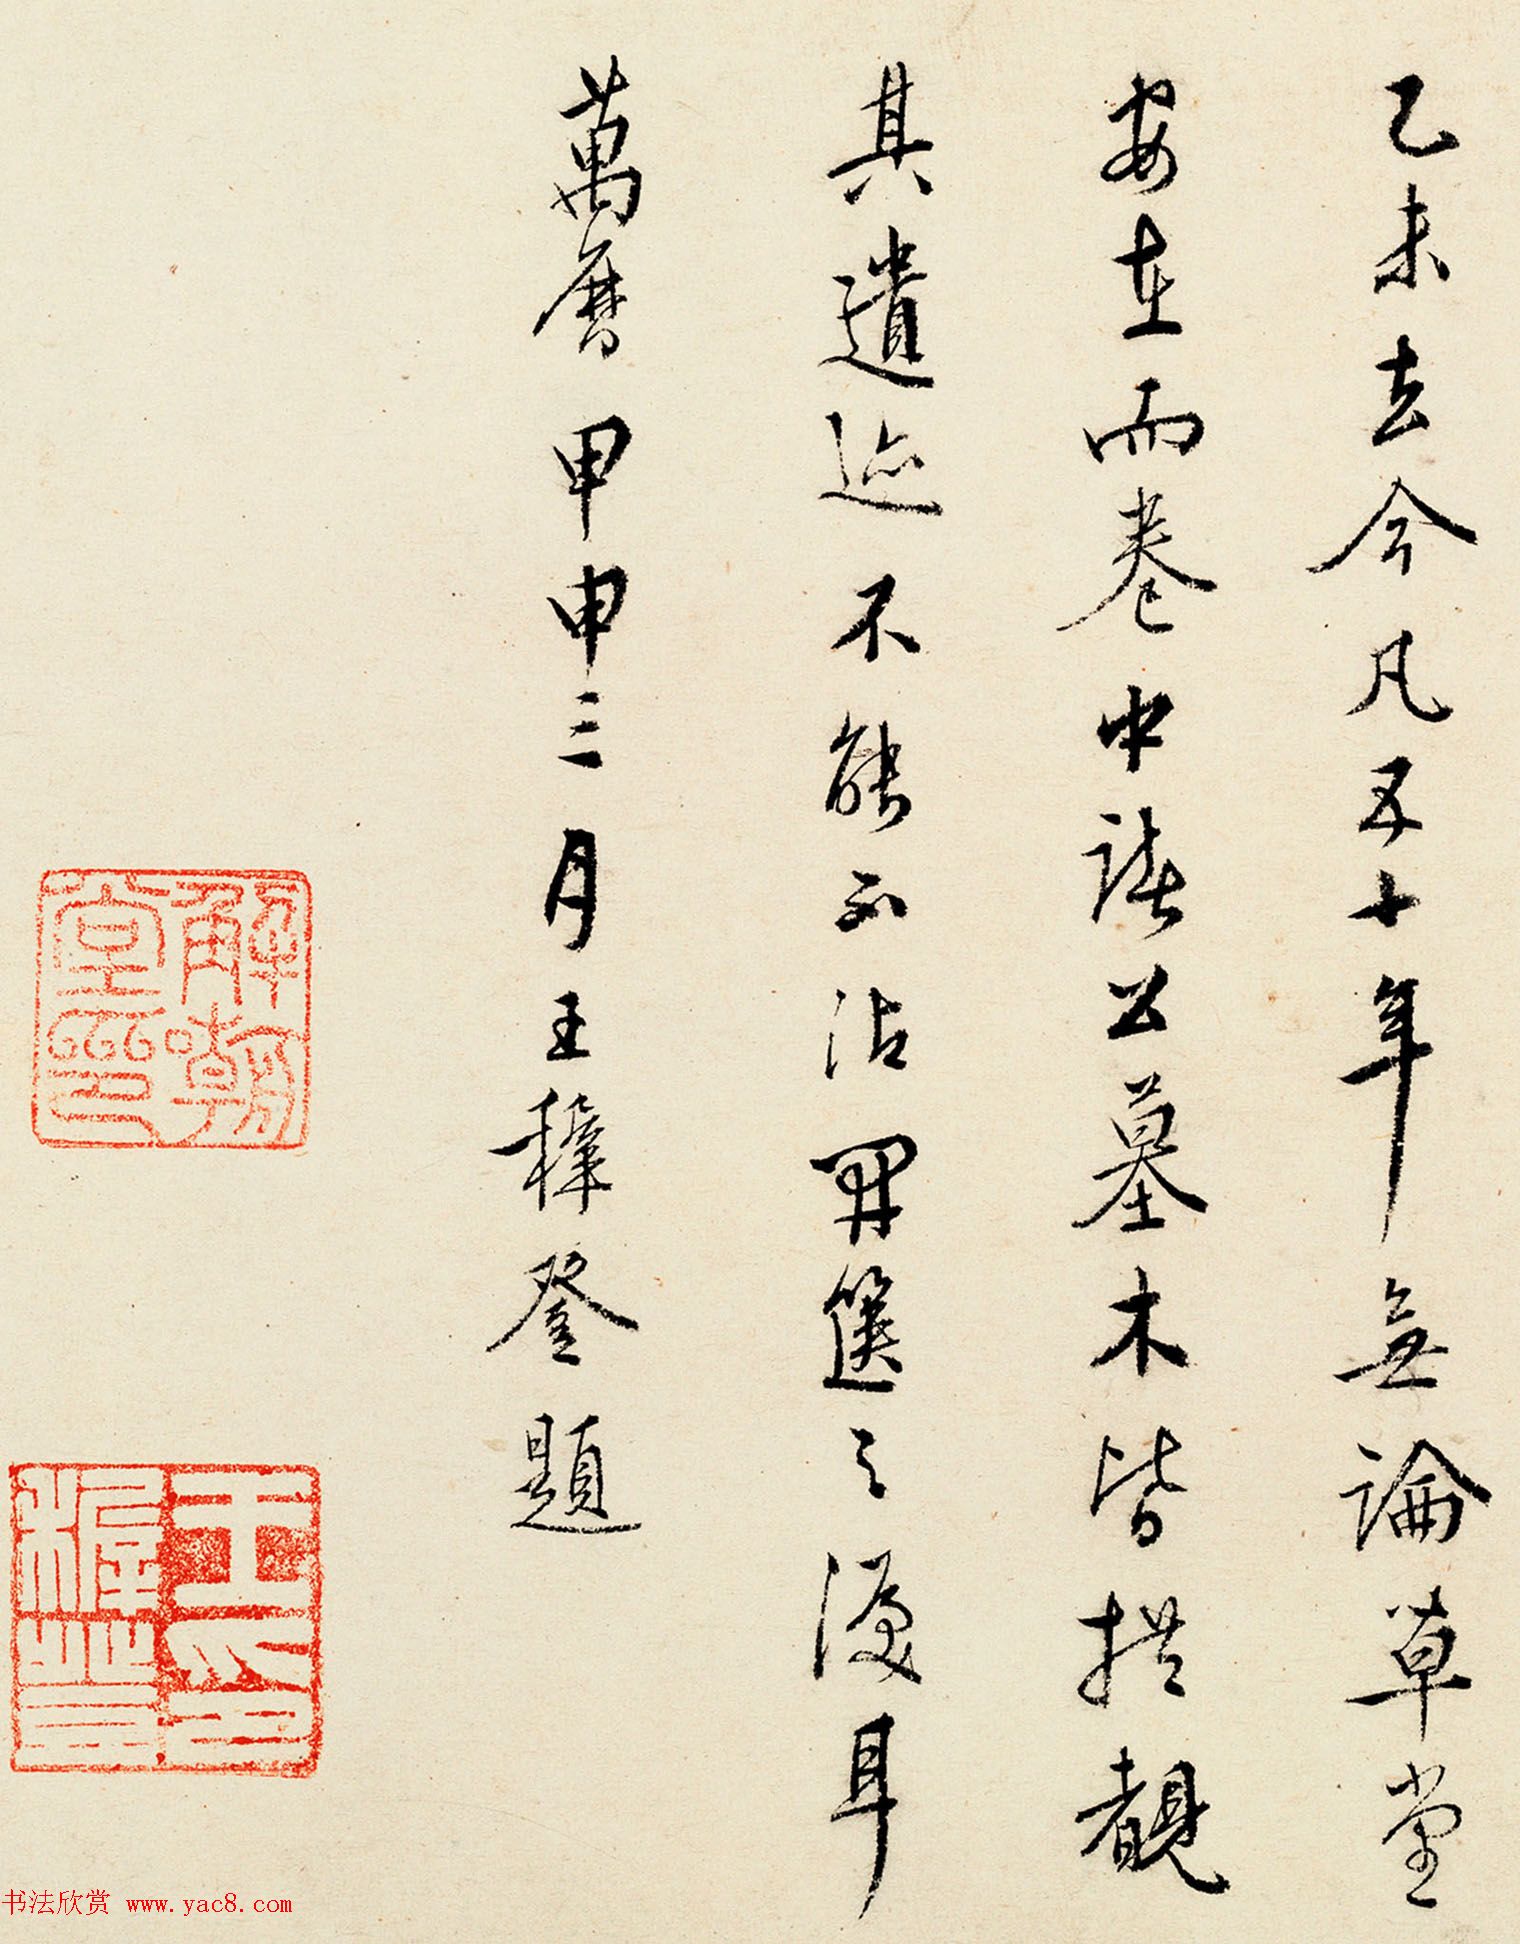 乙未去今凡五十年無論草堂
安在而卷中諸公墓木皆拱覩
其遺迹不能不沾開篋之淚耳
萬曆甲申三月王穉登題
解嘲堂印
王穉登印
书法欣赏 www.yac8.com